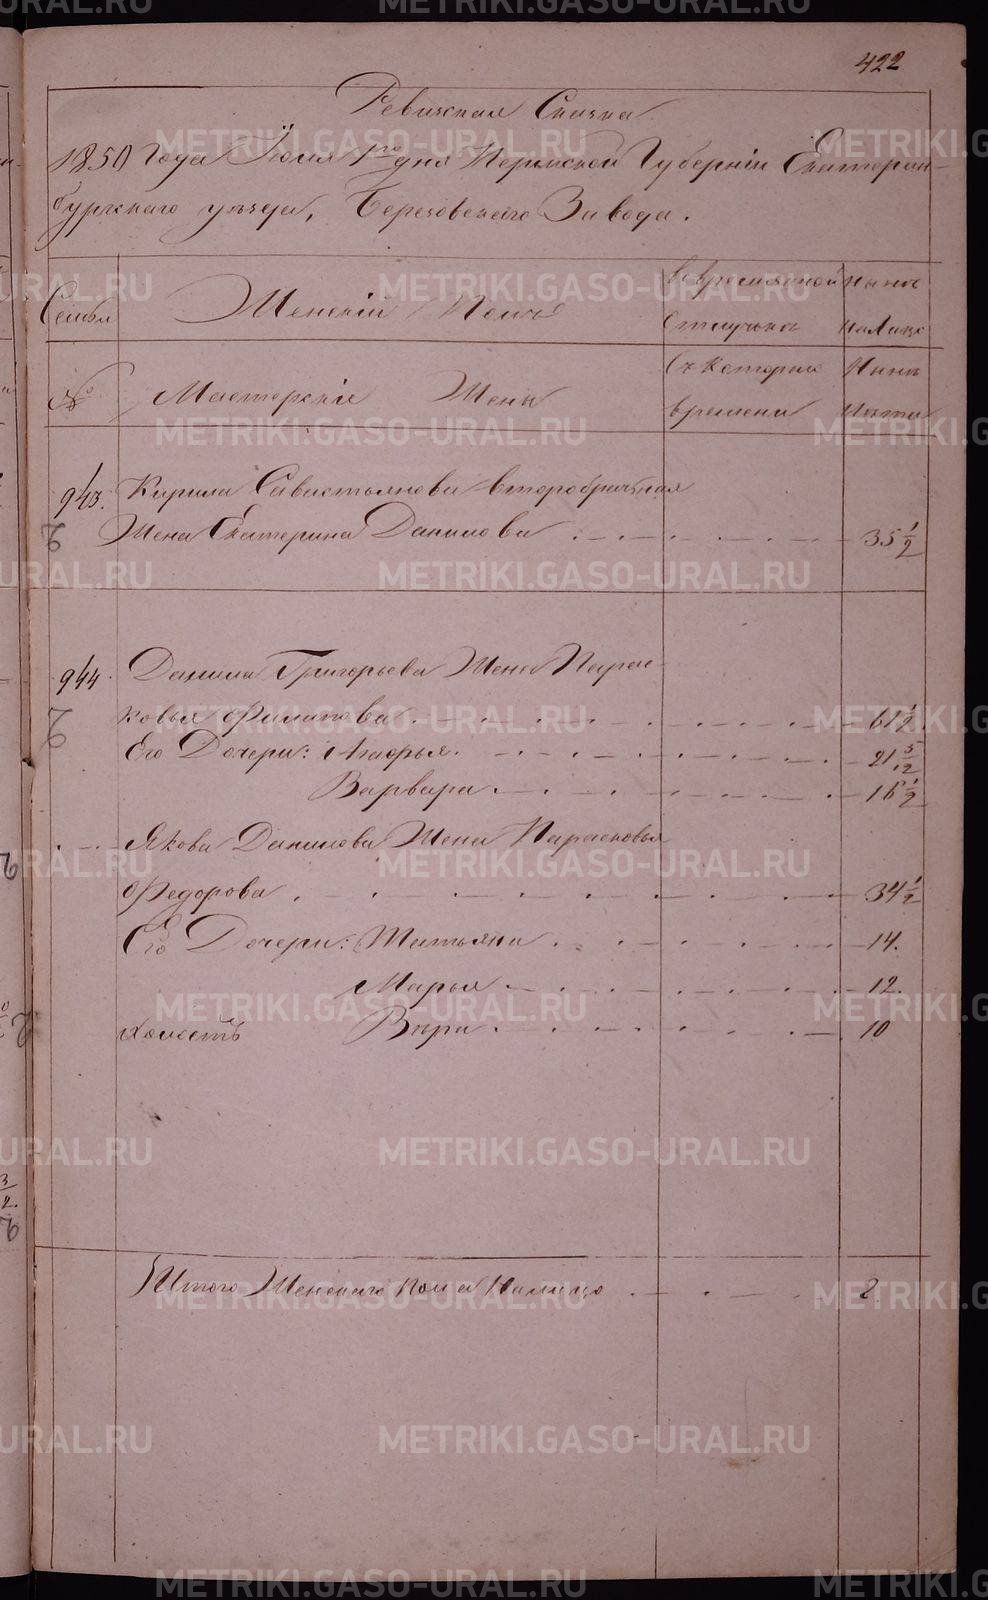 422
Ревизская Сказка
1850 года Июля 1го дня Пермской Губерніи Екатерин-
бургскаго уезда, Березовскаго Завода.
Семьи Женскій Полъ Во временной Ныне
отлучке на Лицо
№ Мастерскіе Жены Съ Котораго Ныне
времени Лета
943. Кирила Савастьянова второбрачная
Жена Екатерина Данилова 35 1/2
944. Данила Григорьева Жена Парас
ковья Филипова 61 1/2
Его Дочери: Агафья 21 5/12
Варвара 16 1/2
Якова Данилова Жена Парасковья
Федорова 34 1/2
Его Дочери: Татьяна 14.
Марья 12.
холостъ Вера 10
Итого Женскаго пола на лицо
METRIKI.GASO-URAL.RU